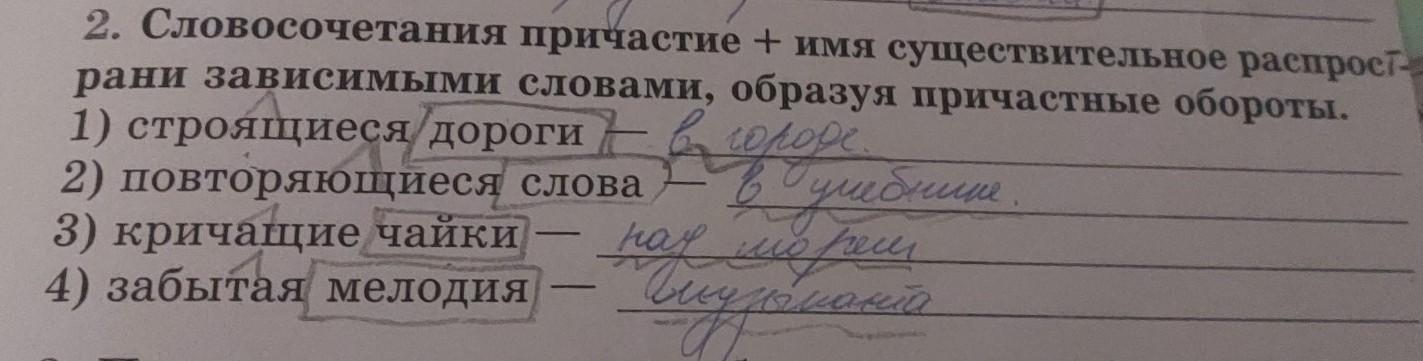 2. Словосочетания причастие + имя существительное распрост-
рани зависимыми словами, образуя причастные обороты.
1) строящиеся дороги — в городе.
2) повторяющиеся слова — в учебнике.
3) кричащие чайки — над морем
4) забытая мелодия — музыканта